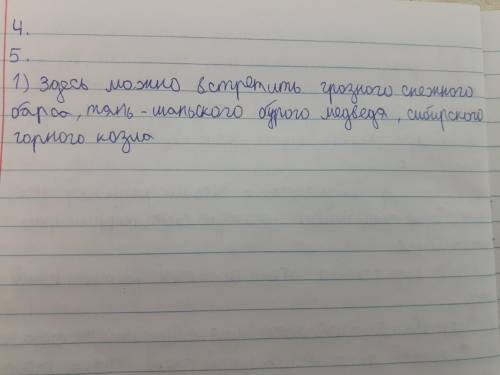 4.
5.
1) Здесь можно встретить грозного снежного
барса, тянь-шаньского бурого медведя, сибирского
горного козла